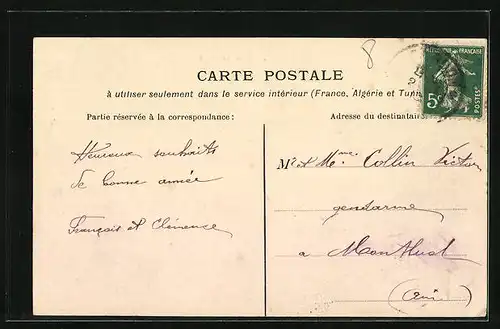 8
RÉPUBLIQUE FRANÇAISE
5c
POSTES
CARTE POSTALE
à utiliser seulement dans le service intérieur (France, Algérie et Tunis
Partie réservée à la correspondance:
Adresse du destinataire
Heureux souhaits
de bonne année
François et Clémence
Mr et Mme Collin Victor
gendarme
a Montluel
(Ain)